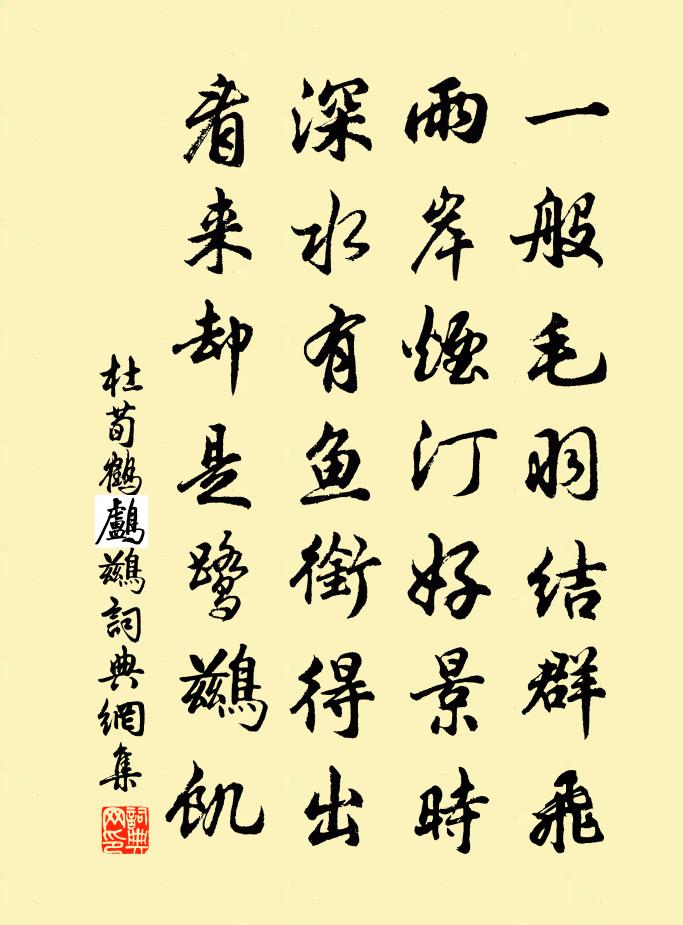 一般毛羽结群飛
雨岸煙汀好景時
深水有鱼銜得出
看来却是鹭鷀飢
杜荀鶴鸕鷀詞典網集
詞典网印